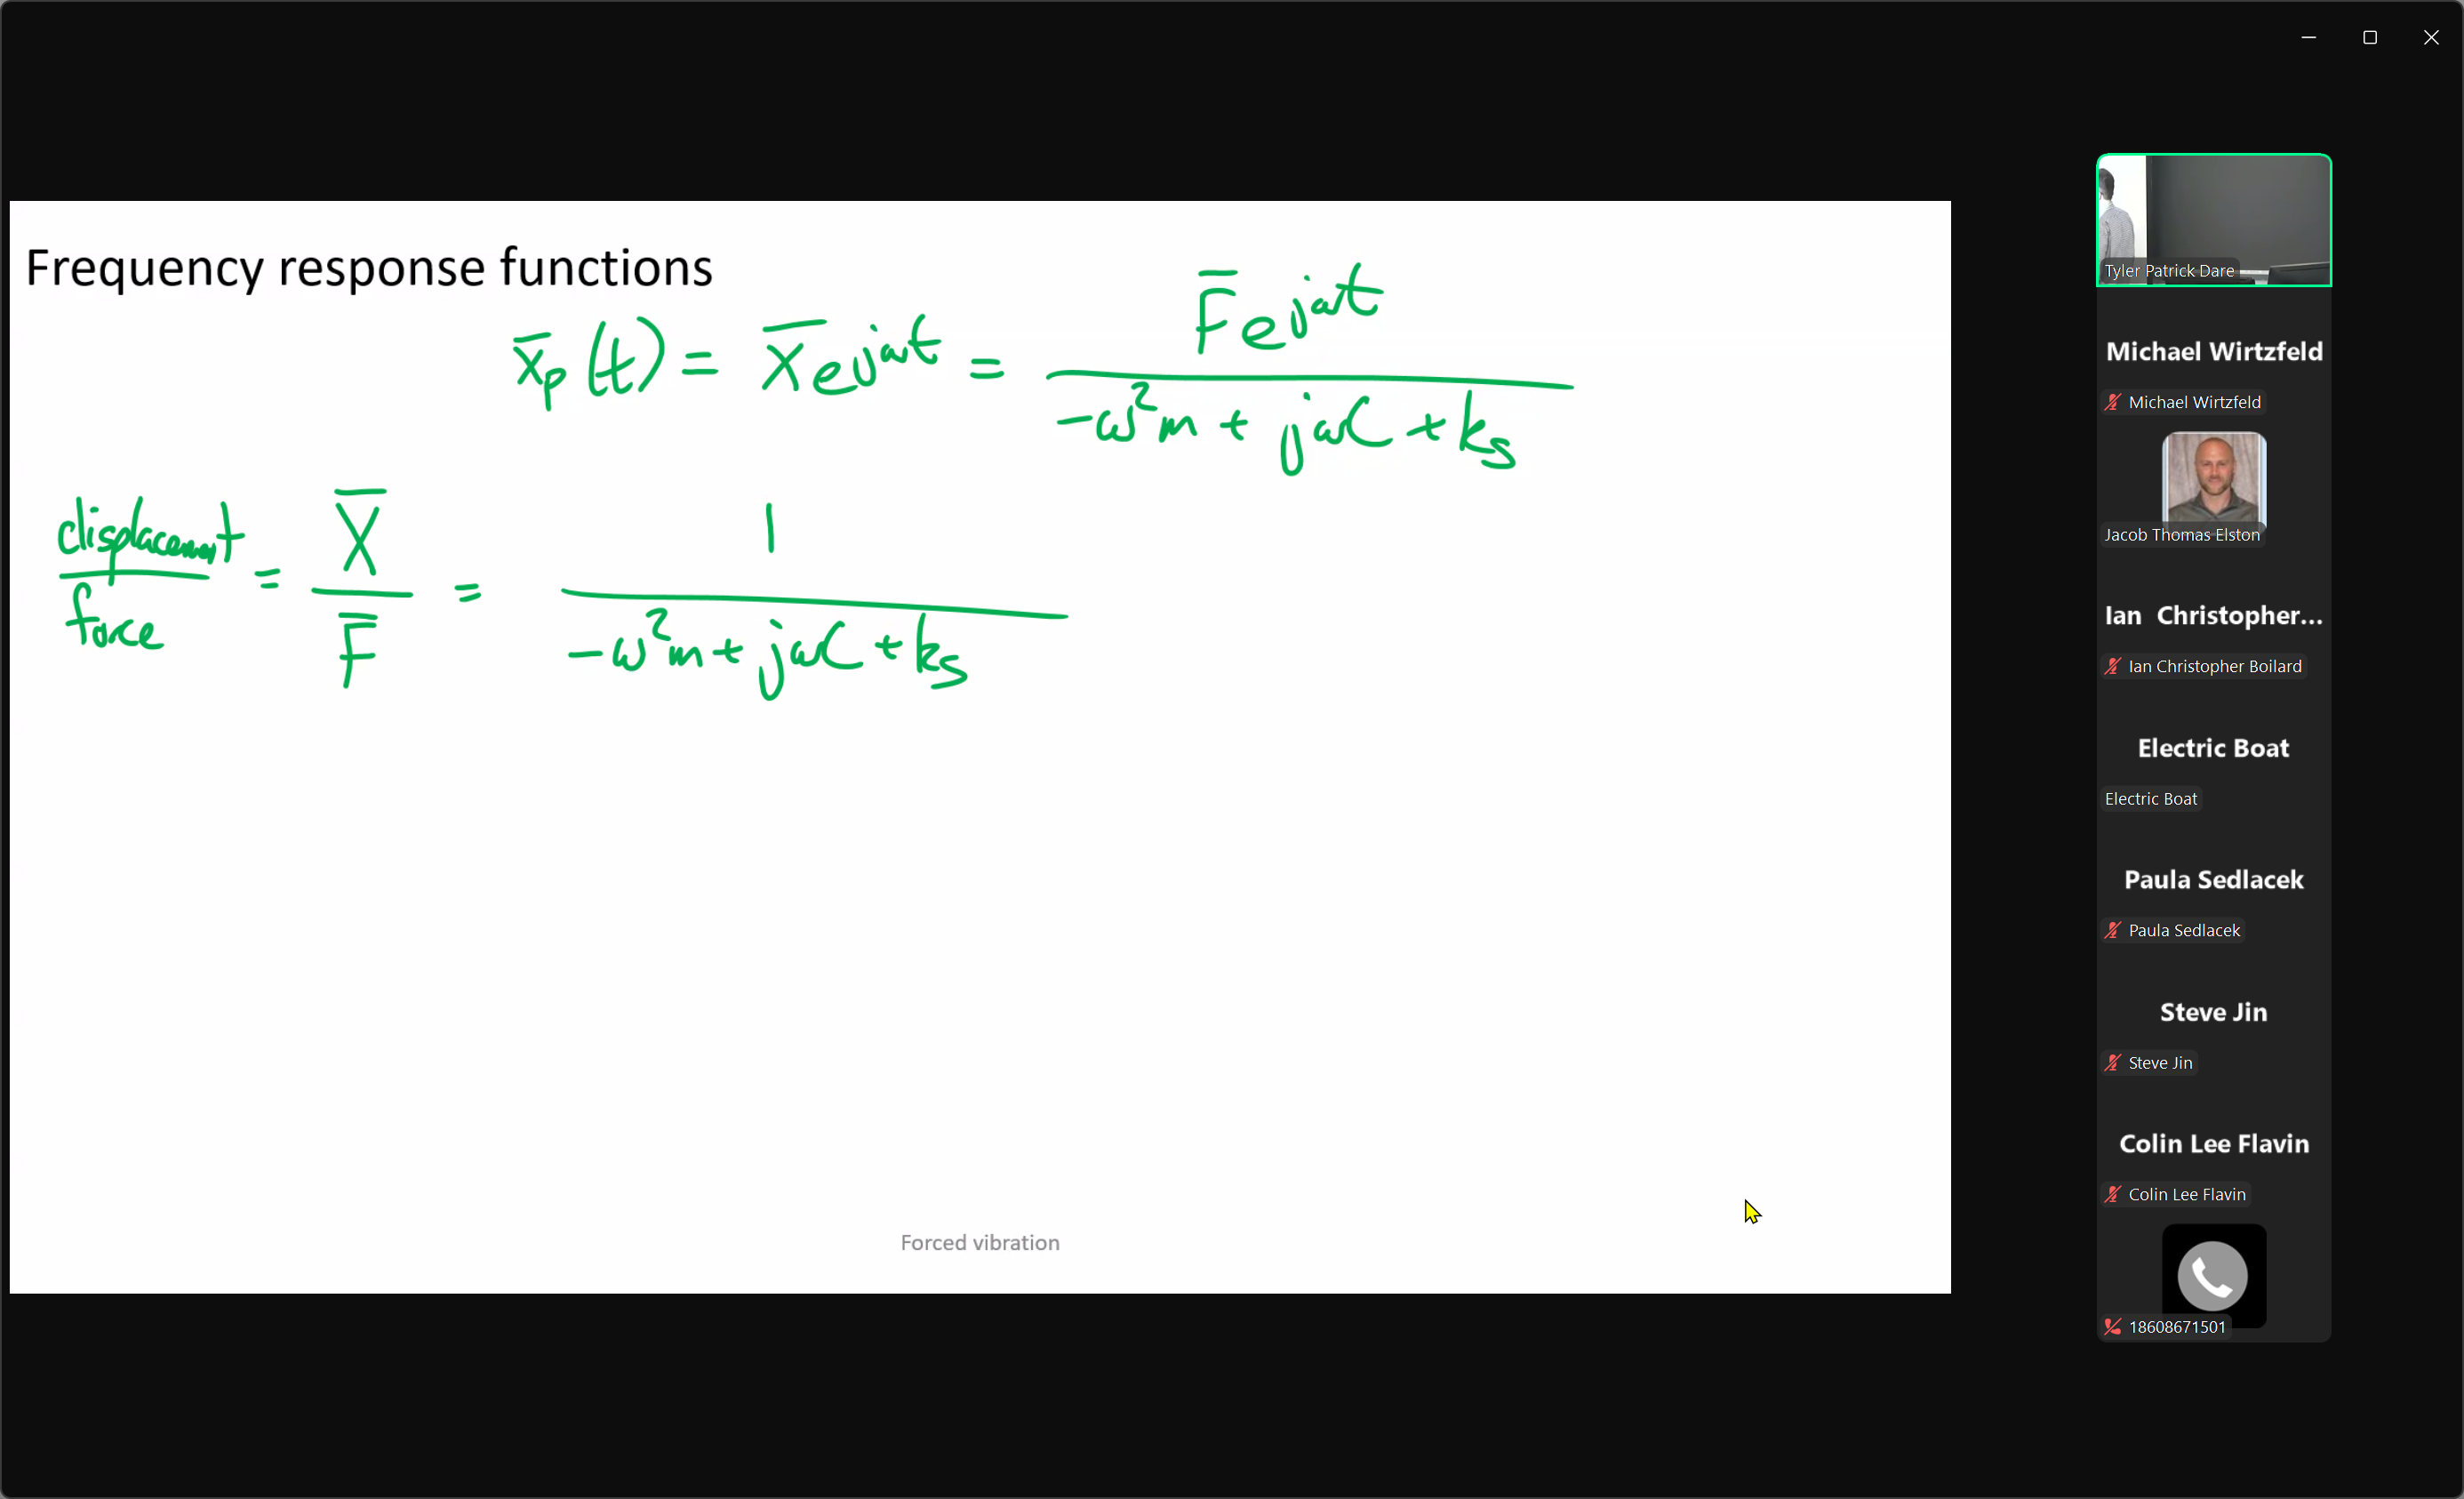 Frequency response functions
x̄ₚ(t) = X̄e^{jωt} = F̄e^{jωt} / (-ω²m + jωC + kₛ)
displacement / force = X̄ / F̄ = 1 / (-ω²m + jωC + kₛ)
Forced vibration
Tyler Patrick Dare
Michael Wirtzfeld
Michael Wirtzfeld
Jacob Thomas Elston
Ian Christopher...
Ian Christopher Boilard
Electric Boat
Electric Boat
Paula Sedlacek
Paula Sedlacek
Steve Jin
Steve Jin
Colin Lee Flavin
Colin Lee Flavin
18608671501